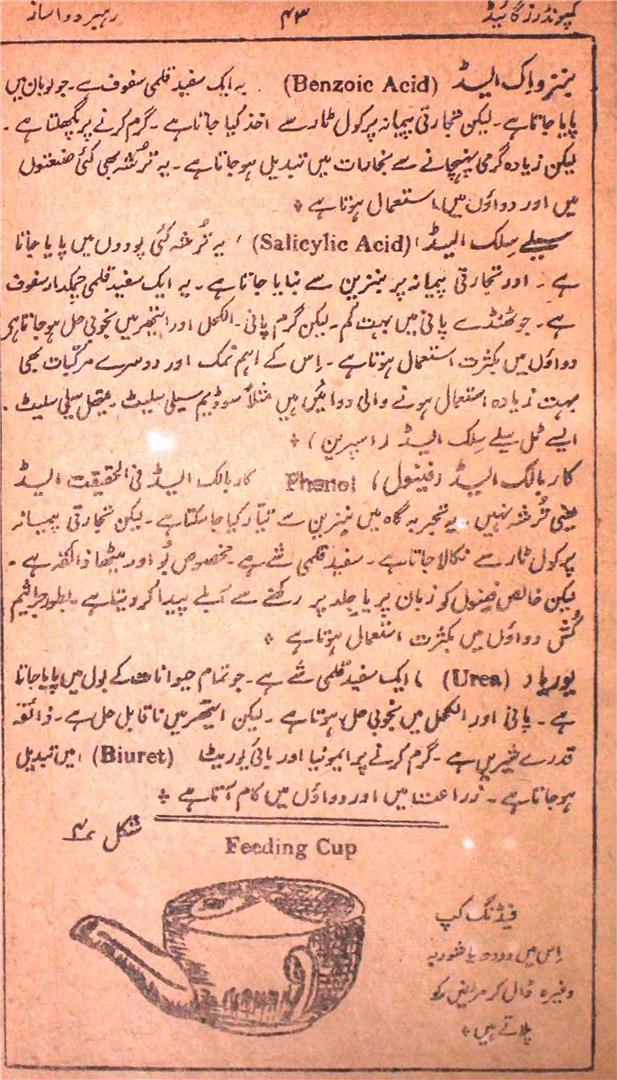 کمپونڈرز گائیڈ ۴۳ رہبر دواساز
بنزوئک ایسڈ (Benzoic Acid) ۔ یہ ایک سفید قلمی سفوف ہے۔ جو لوبان میں
پایا جاتا ہے۔ لیکن تجارتی پیمانہ پر کول ٹار سے اخذ کیا جاتا ہے۔ گرم کرنے پر پگھلتا ہے۔
لیکن زیادہ گرمی پہنچانے سے بخارات میں تبدیل ہو جاتا ہے۔ یہ ترشہ بھی کئی صنعتوں
میں اور دواؤں میں استعمال ہوتا ہے ٭
سیلے سلک ایسڈ (Salicylic Acid) ، یہ تُرشہ کئی پودوں میں پایا جاتا
ہے۔ اور تجارتی پیمانہ پر بنزین سے بنایا جاتا ہے۔ یہ ایک سفید قلمی چمکدار سفوف
ہے۔ جو ٹھنڈے پانی میں بہت کم۔ لیکن گرم پانی۔ الکحل اور ایتھر میں بخوبی حل ہو جاتا ہے
دواؤں میں بکثرت استعمال ہوتا ہے۔ اس کے اہم نمک اور دوسرے مرکبات بھی
بہت زیادہ استعمال ہونے والی دوائیں ہیں مثلاً سوڈیم سیلی سلیٹ۔ میتھل سیلی سلیٹ۔
ایسے ٹل سیلے سلک ایسڈ (اسپرین) ٭
کاربالک ایسڈ (فینول) Phenol کاربالک ایسڈ فی الحقیقت ایسڈ
یعنی تُرشہ نہیں۔ یہ تجربہ گاہ میں بنزین سے تیار کیا جا سکتا ہے۔ لیکن تجارتی پیمانہ
پر کول ٹار سے نکالا جاتا ہے۔ سفید قلمی شے ہے۔ مخصوص بُو اور میٹھا ذائقہ ہے۔
لیکن خالص فینول کو زبان پر یا جلد پر رکھنے سے آبلے پیدا کر دیتا ہے۔ بطور جراثیم
کُش دواؤں میں بکثرت استعمال ہوتا ہے ٭
یوریا (Urea) ایک سفید قلمی شے ہے۔ جو تمام حیوانات کے بول میں پایا جاتا
ہے۔ پانی اور الکحل میں بخوبی حل ہوتا ہے۔ لیکن ایتھر میں ناقابل حل ہے۔ ذائقہ
قدرے شیریں ہے۔ گرم کرنے پر ایمونیا اور بائی یوریٹ (Biuret) میں تبدیل
ہو جاتا ہے۔ زراعت میں اور دواؤں میں کام آتا ہے ٭
شکل
Feeding Cup
فیڈنگ کپ
اس میں دودھ یا شوربہ
وغیرہ ڈال کر مریض کو
پلاتے ہیں ٭